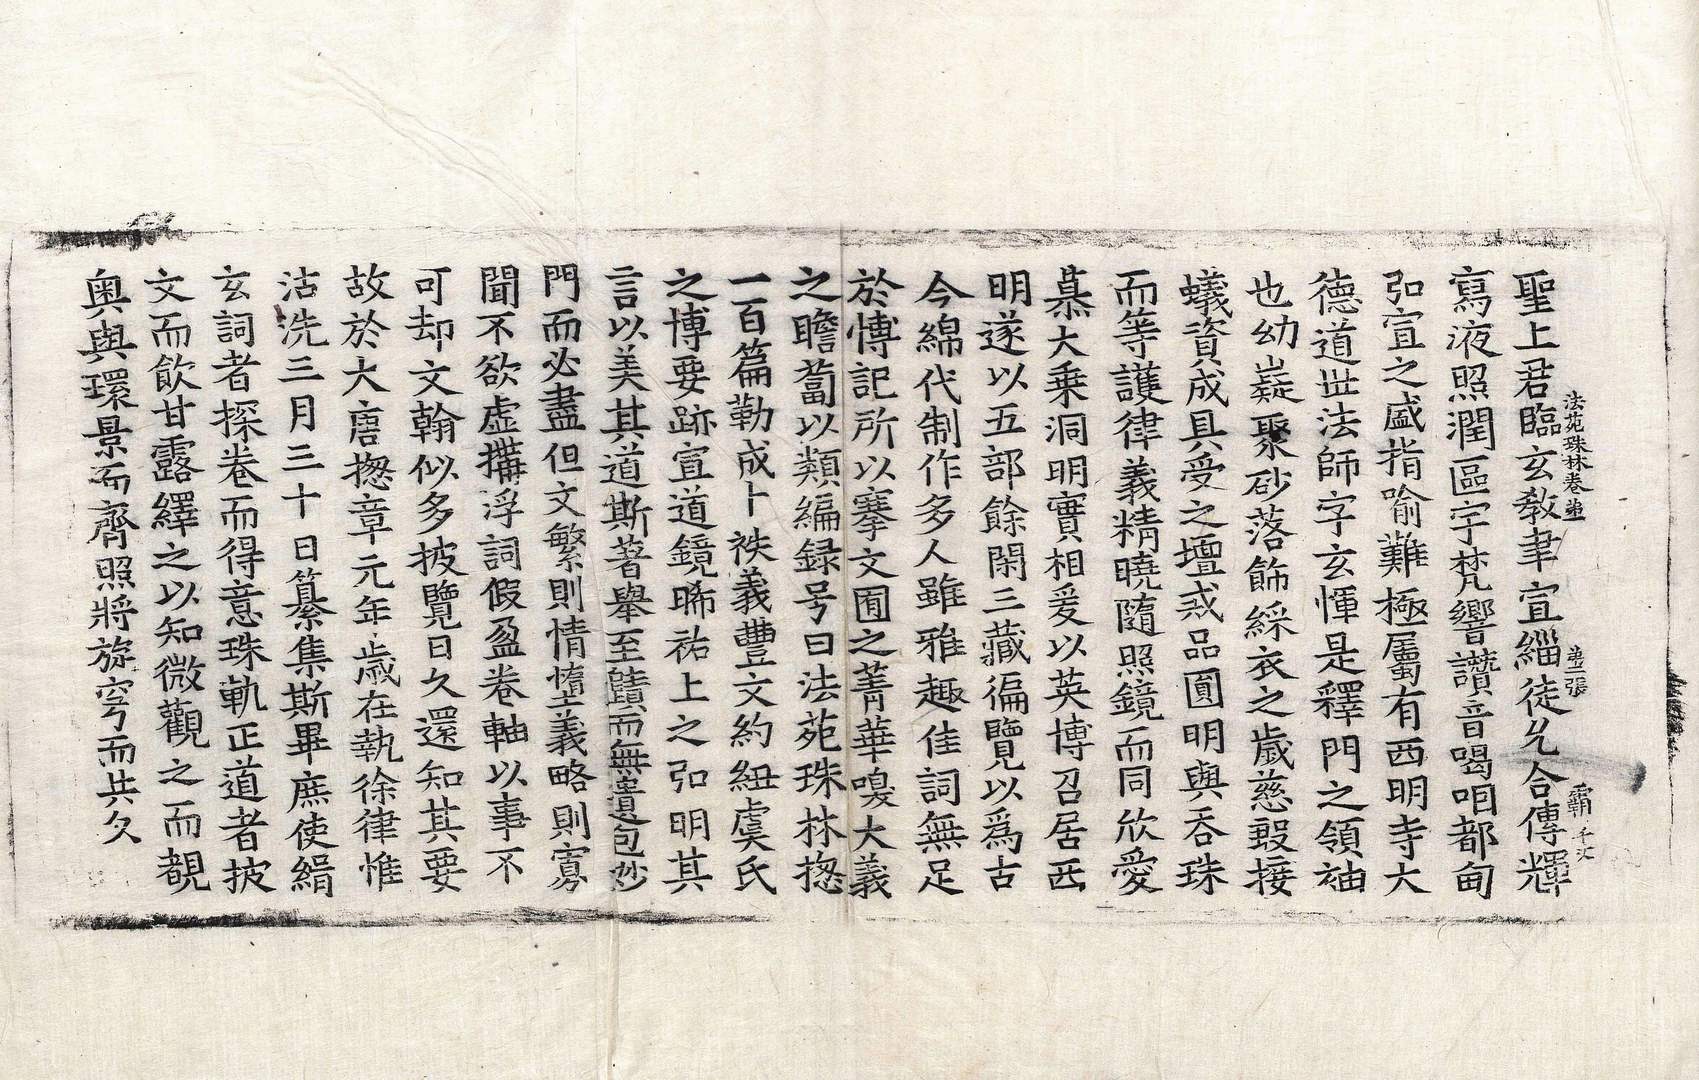 聖上君臨玄教聿宣緇徒允合傳輝
法苑珠林卷第一 第二張 霸 千
寫液照潤區宇梵響讚音唱咀都甸
弘宣之盛指喻難極屬有西明寺大
德道世法師字玄惲是釋門之領袖
也幼嶷聚砂落飾綵衣之歲慈殷接
蟻資成具受之壇戒品圓明與吞珠
而等護律義精曉隨照鏡而同欣愛
慕大乗洞明實相爰以英博召居西
明遂以五部餘閑三藏徧覽以爲古
今綿代制作多人雖雅趣佳詞無足
於博記所以搴文囿之菁華嗅大義
之瞻蔔以類編録号曰法苑珠林揔
一百篇勒成十袟義豐文約紐虞氏
之博要跡宣道鏡晞祐上之弘明其
言以美其道斯著舉至賾而無遺包妙
門而必盡但文繁則情墯義略則寡
聞不欲虛搆浮詞假盈卷軸以事不
可却文翰似多披覽日久還知其要
故於大唐揔章元年歲在執徐律惟
沽洗三月三十日纂集斯畢庶使緝
玄詞者探卷而得意珠軌正道者披
文而飲甘露繹之以知微觀之而覩
奥與環景而齊照將旋穹而共久